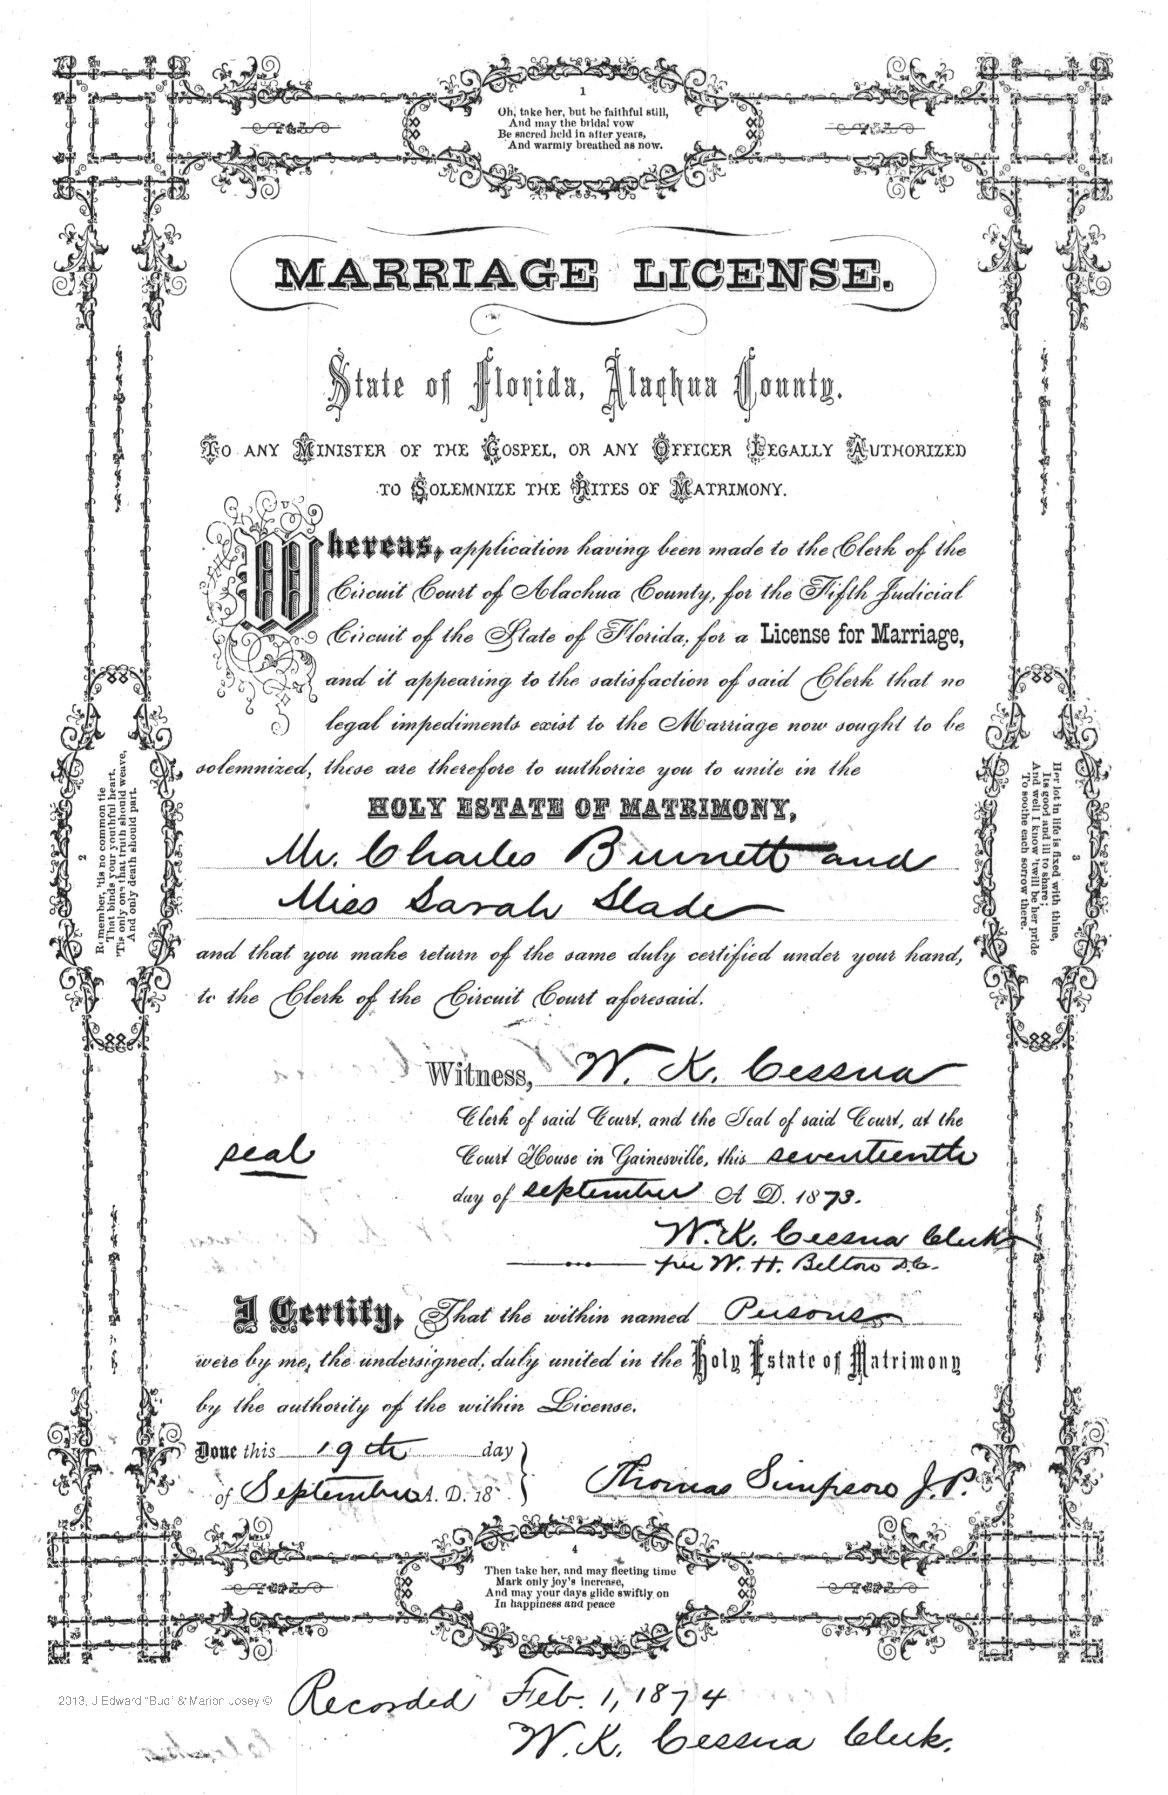 1
Oh, take her, but be faithful still,
And may the bridal vow
Be sacred held in after years,
And warmly breathed as now.
MARRIAGE LICENSE.
State of Florida, Alachua County.
To any Minister of the Gospel, or any Officer Legally Authorized
to Solemnize the Rites of Matrimony.
Whereas, application having been made to the Clerk of the
Circuit Court of Alachua County, for the Fifth Judicial
Circuit of the State of Florida, for a License for Marriage,
and it appearing to the satisfaction of said Clerk that no
legal impediments exist to the Marriage now sought to be
solemnized, these are therefore to authorize you to unite in the
HOLY ESTATE OF MATRIMONY,
Mr. Charles Burnett and
Miss Sarah Slade
and that you make return of the same duly certified under your hand,
to the Clerk of the Circuit Court aforesaid.
2
Remember, 'tis no common tie
That binds your youthful heart.
'Tis only one that truth should weave,
And only death should part.
3
Her lot in life is fixed with thine,
Its good and ill to share;
And well I know 'twill be her pride
To soothe each sorrow there.
Witness, W. K. Cessna
Clerk of said Court, and the Seal of said Court, at the
seal
Court House in Gainesville, this seventeenth
day of September A. D. 1873.
W. K. Cessna Clerk
per W. H. Belton D.C.
I Certify, That the within named Persons
were by me, the undersigned, duly united in the Holy Estate of Matrimony
by the authority of the within License.
Done this 19th day
of September A. D. 18
Thomas Simpson J.P.
4
Then take her, and may fleeting time
Mark only joy's increase,
And may your days glide swiftly on
In happiness and peace
2013, J Edward "Bud" & Marion Josey ©
Recorded Feb. 1, 1874
W. K. Cessna Clerk.